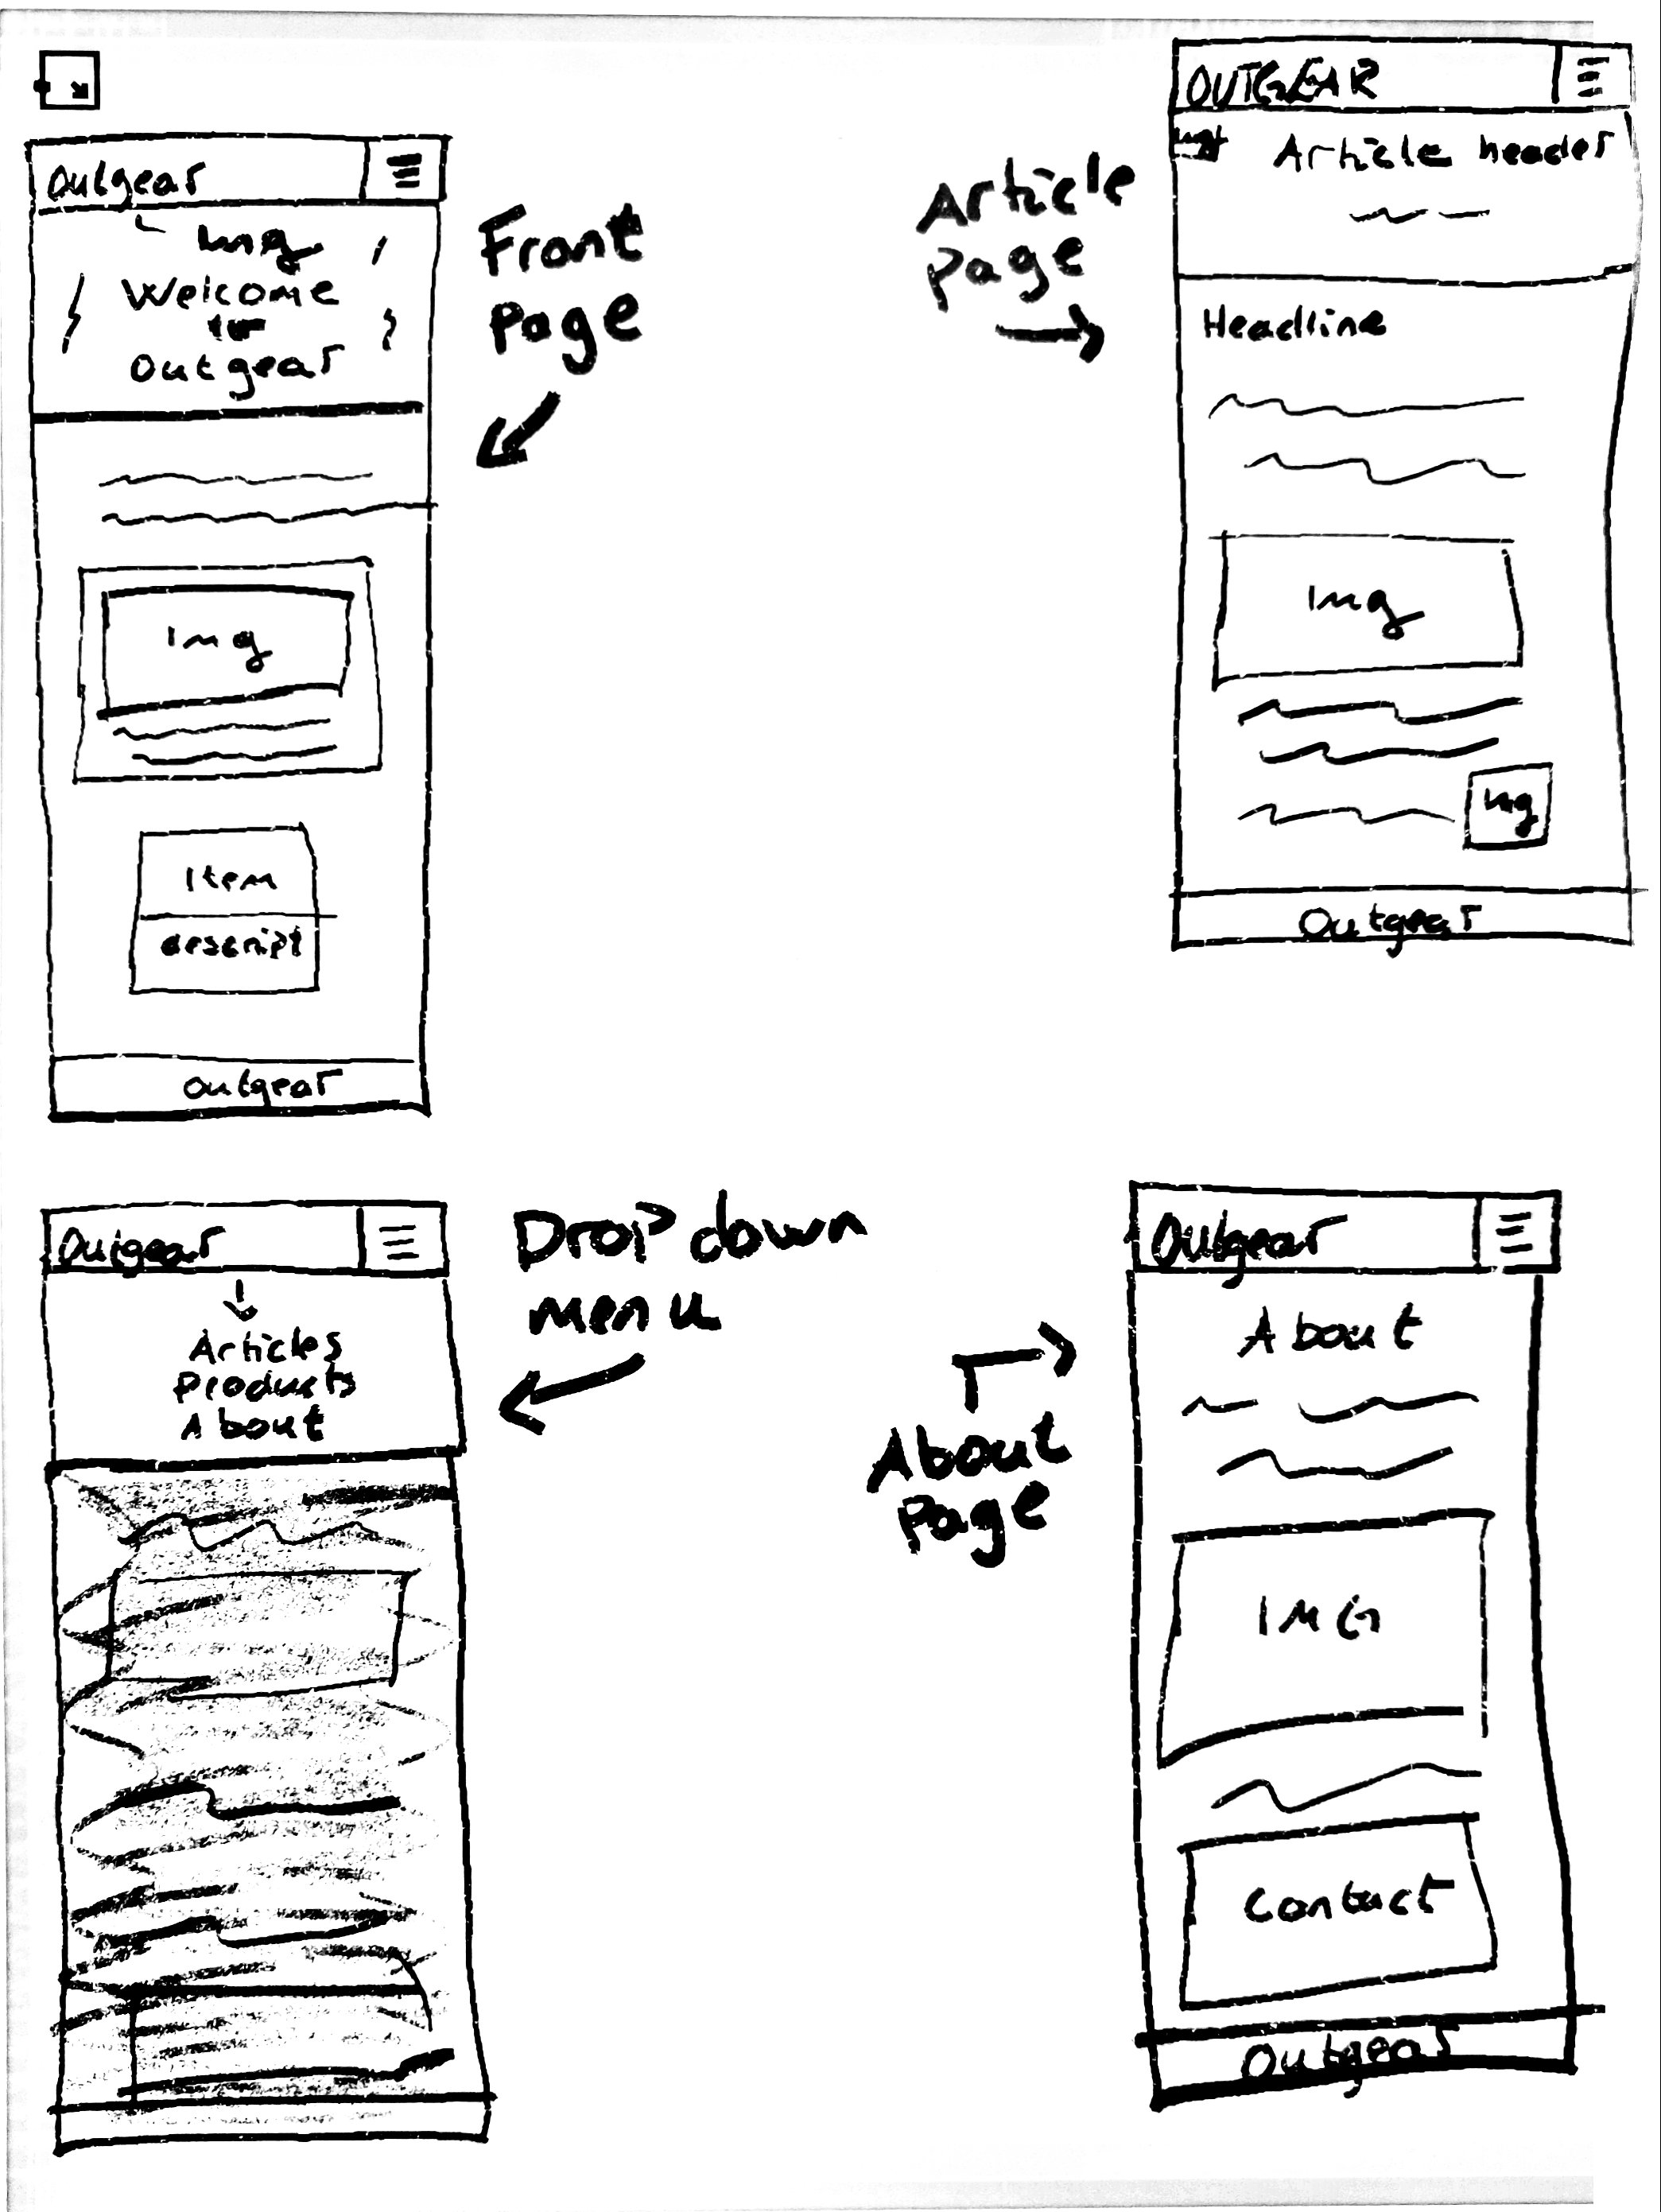 Outgear
Img
Welcome
to
Outgear
Img
Item
descript
Outgear
Front
Page
Article
Page
OUTGEAR
Img
Article header
Headline
Img
Img
Outgear
Outgear
Articles
Products
About
Drop down
menu
About
Page
Outgear
About
IMG
Contact
Outgear